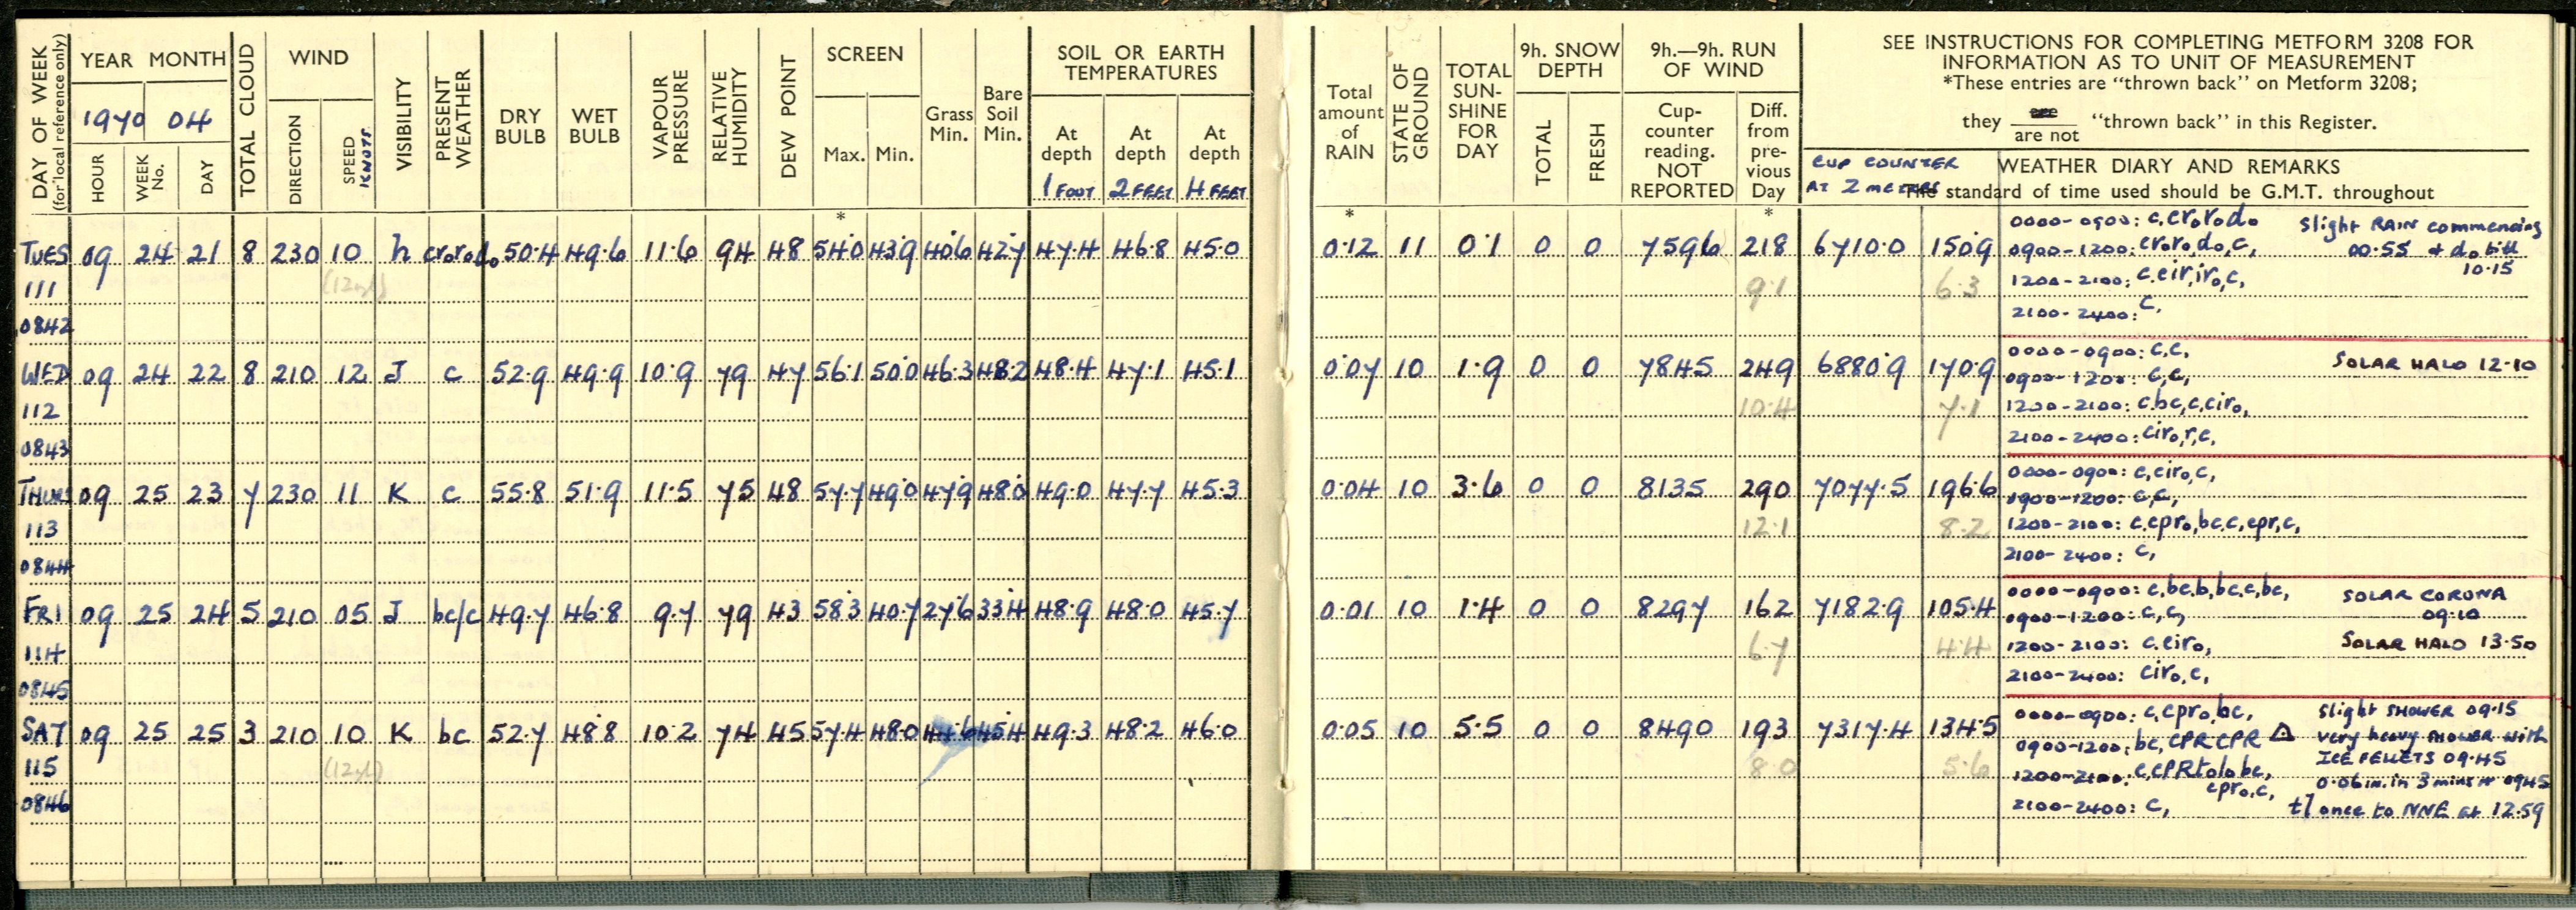 DAY OF WEEK
(for local reference only)
YEAR MONTH
1970 04
HOUR
WEEK No.
DAY
TOTAL CLOUD
WIND
DIRECTION
SPEED KNOTS
VISIBILITY
PRESENT WEATHER
DRY BULB
WET BULB
VAPOUR PRESSURE
RELATIVE HUMIDITY
DEW POINT
SCREEN
Max. Min.
Grass Min.
Bare Soil Min.
SOIL OR EARTH
TEMPERATURES
At depth 1 FOOT
At depth 2 FEET
At depth 4 FEET
Total amount of RAIN
*
STATE OF GROUND
TOTAL SUN-SHINE FOR DAY
9h. SNOW DEPTH
TOTAL
FRESH
9h.—9h. RUN OF WIND
Cup-counter reading. NOT REPORTED
Diff. from pre-vious Day
*
SEE INSTRUCTIONS FOR COMPLETING METFORM 3208 FOR
INFORMATION AS TO UNIT OF MEASUREMENT
*These entries are "thrown back" on Metform 3208;
they are / are not "thrown back" in this Register.
CUP COUNTER
AT 2 METRES
WEATHER DIARY AND REMARKS
The standard of time used should be G.M.T. throughout
TUES 09 24 21 8 230 10 h cr₀r₀d₀ 50.4 49.6 11.6 94 48 54.0 43.9 40.6 42.7 47.4 46.8 45.0 0.12 11 0.1 0 0 7596 218 6710.0 150.9
111 9.1 6.3
0842
0000-0900: c,cr₀r₀d₀
0900-1200: cr₀r₀,d₀,c,
1200-2100: c,cir,ir₀,c,
2100-2400: c,
Slight RAIN commencing
00.55 & d₀ till
10.15
WED 09 24 22 8 210 12 J c 52.9 49.9 10.9 79 47 56.1 50.0 46.3 48.2 48.4 47.1 45.1 0.07 10 1.9 0 0 7845 249 6880.9 170.9
112 10.4 7.1
0843
0000-0900: c,c,
0900-1200: c,c,
1200-2100: c,bc,c,cir₀,
2100-2400: cir₀,r,c,
SOLAR HALO 12.10
THURS 09 25 23 7 230 11 K c 55.8 51.9 11.5 75 48 57.7 49.0 47.9 48.0 49.0 47.7 45.3 0.04 10 3.6 0 0 8135 290 7077.5 196.6
113 12.1 8.2
0844
0000-0900: c,cir₀,c,
0900-1200: c,c,
1200-2100: c,cpr₀,bc,c,cpr,c,
2100-2400: c,
FRI 09 25 24 5 210 05 J bc/c 49.7 46.8 9.7 79 43 58.3 40.7 27.6 33.4 48.9 48.0 45.7 0.01 10 1.4 0 0 8297 162 7182.9 105.4
114 6.7 4.4
0845
0000-0900: c,bc,b,bc,c,bc,
0900-1200: c,c,
1200-2100: c,cir₀,
2100-2400: cir₀,c,
SOLAR CORONA
09.10
SOLAR HALO 13.50
SAT 09 25 25 3 210 10 K bc 52.7 48.8 10.2 74 45 57.4 48.0 44.6 45.4 49.3 48.2 46.0 0.05 10 5.5 0 0 8490 193 7317.4 134.5
115 8.0 5.6
0846
0000-0900: c,cpr₀,bc,
0900-1200: bc, CPR CPR
1200-2100: c,cPRtlolo bc,
cpr₀,c,
2100-2400: c,
Slight SHOWER 09.15
very heavy SHOWER with
ICE PELLETS 09.45
0.06 in. in 3 mins at 0945
tl once to NNE at 12.59